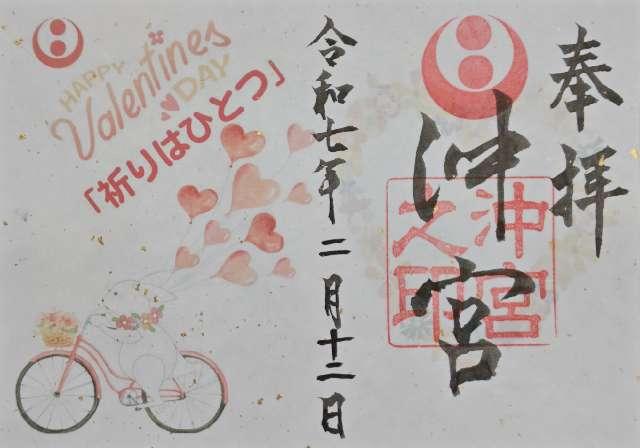 奉拝
沖宮
沖宮之印
令和七年二月十二日
HAPPY
Valentines
DAY
「祈りはひとつ」